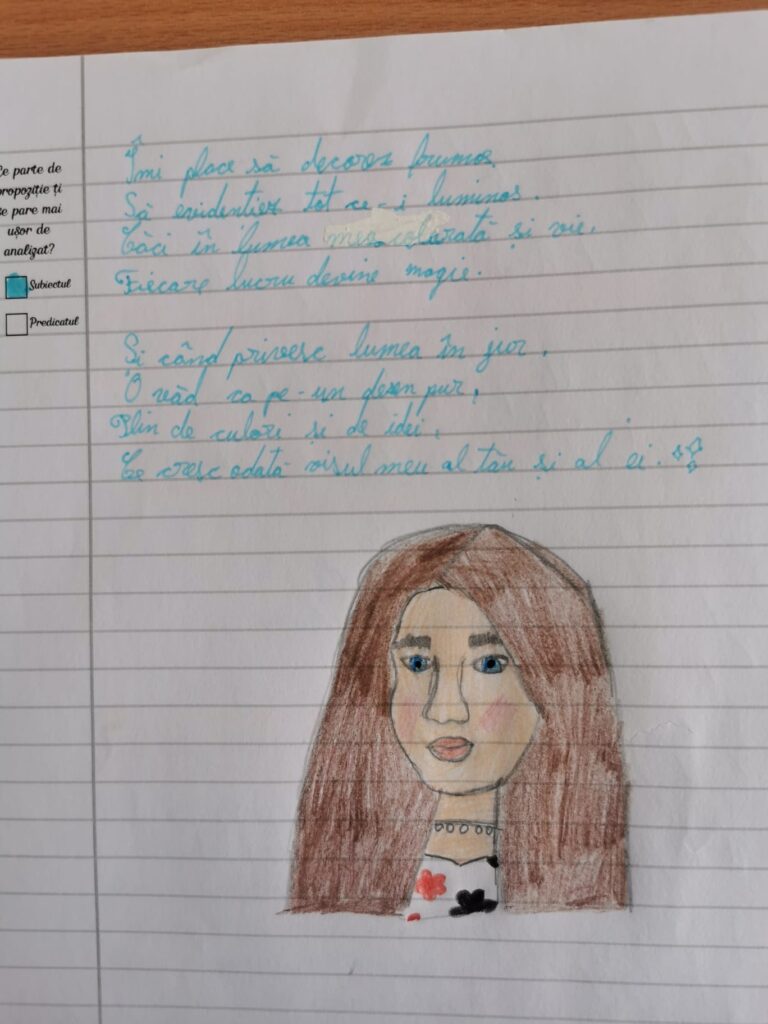 Ce parte de
propoziție ți
se pare mai
ușor de
analizat?
Subiectul
Predicatul
Îmi place să decorez frumos,
Să evidentiez tot ce-i luminos.
Căci în lumea mea colorată și vie,
Fiecare lucru devine magie.
Și când privesc lumea în jior,
O văd ca pe-un desen pur,
Plin de culori și de idei,
Ce cresc odată visul meu al tău și al ei.